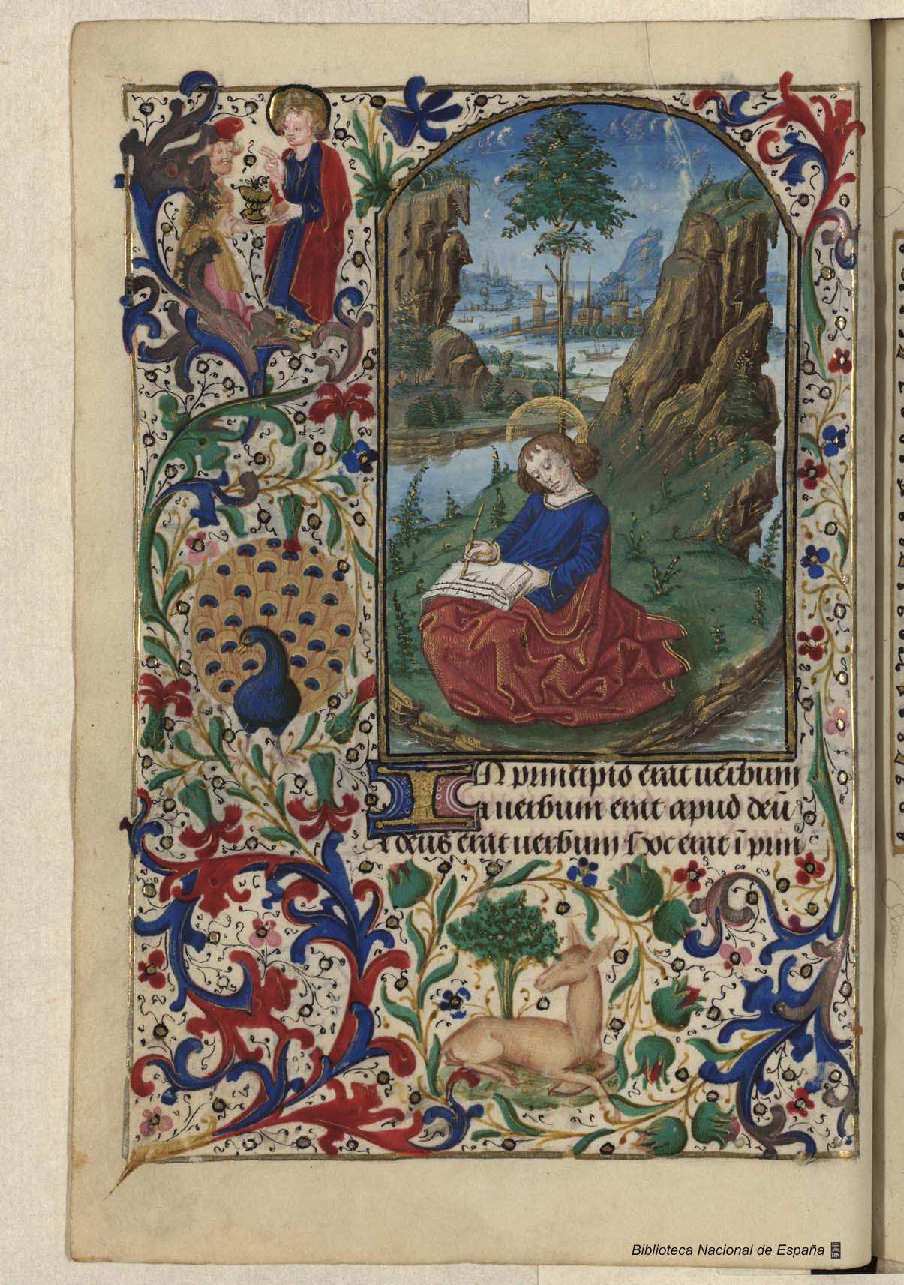 IN principio erat uerbum
et uerbum erat apud deū
et deus erat uerbum hoc erat ī prin
Biblioteca Nacional de España